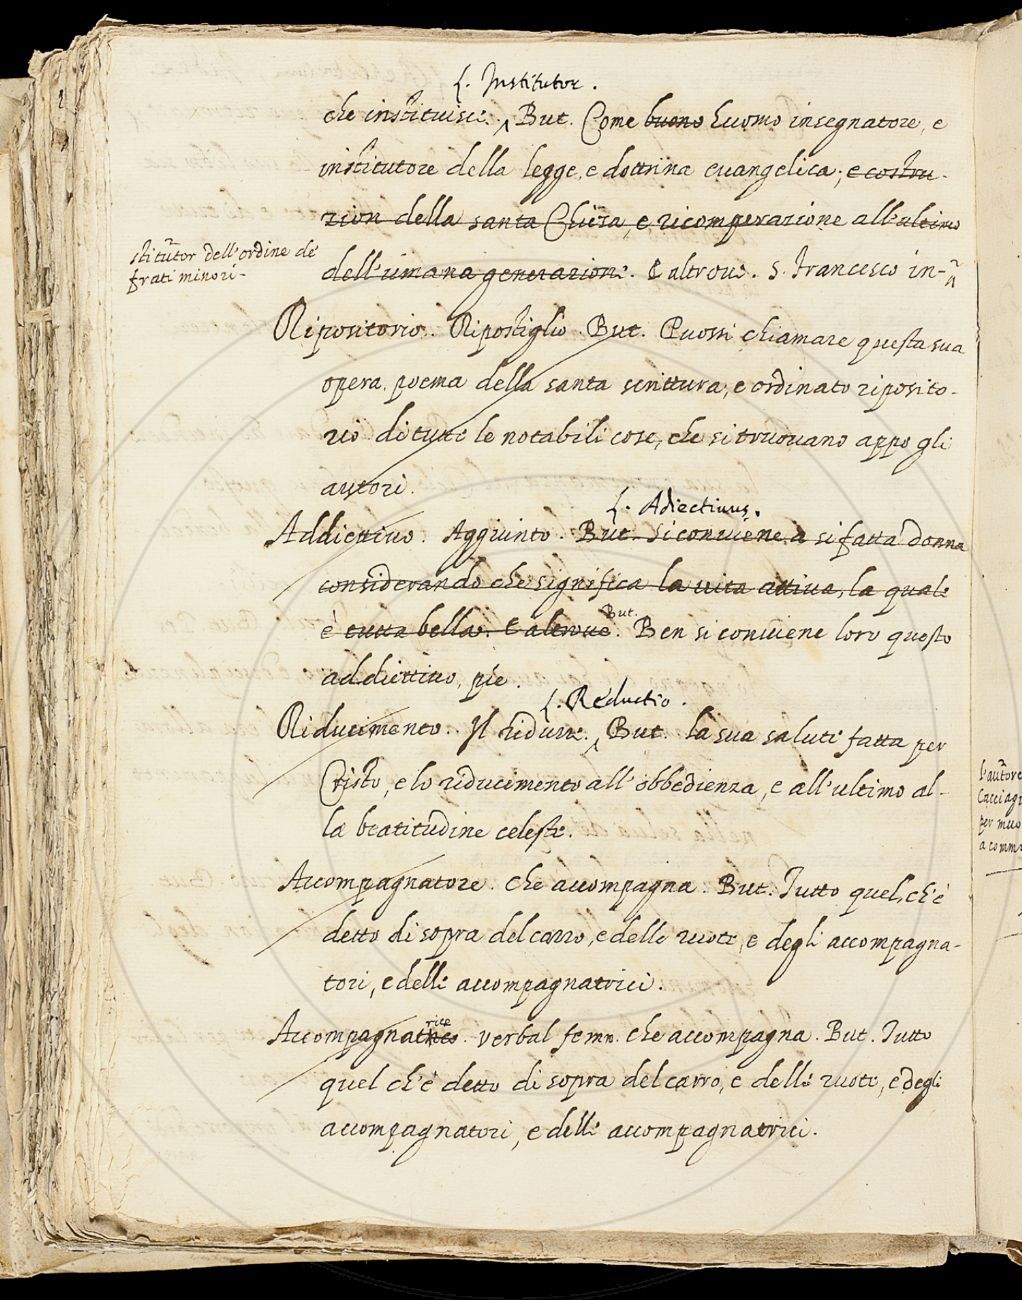 L. Institutor.
che instituisce. But. Come buono huomo insegnatore, e
institutore della legge, e dottrina euangelica; e costru-
zion della santa Chiesa, e ricomperazione all'ultimo
stitutor dell'ordine de'
frati minori-
dell'umana generazione. E altroue. S. Francesco in-
Ripositorio. Ripostiglio. But. Puossi chiamare questa sua
opera, poema della santa scrittura, e ordinato riposito-
rio di tutte le notabili cose, che si truouano appo gli
autori.
L. Adiectiuus.
Addiettiuo. Aggiunto. But. Si conuiene a si fatta donna
considerando che significa la uita attiua, la quale
è tutta bella. E altroue. But. Ben si conuiene loro questo
addiettiuo, pie.
L. Reductio.
Riducimento. Il ridurre. But. la sua salute fatta per
Cristo, e lo riducimento all'obbedienza, e all'ultimo al-
la beatitudine celeste.
Accompagnatore. che accompagna. But. Tutto quel, ch'è
detto di sopra del carro, e delle ruote, e degli accompagna-
tori, e delle accompagnatrici.
rice
Accompagnatrice. verbal femm. che accompagna. But. Tutto
quel ch'è detto di sopra del carro, e delle ruote, e degli
accompagnatori, e delle accompagnatrici.
l'autore
per muo
a comm